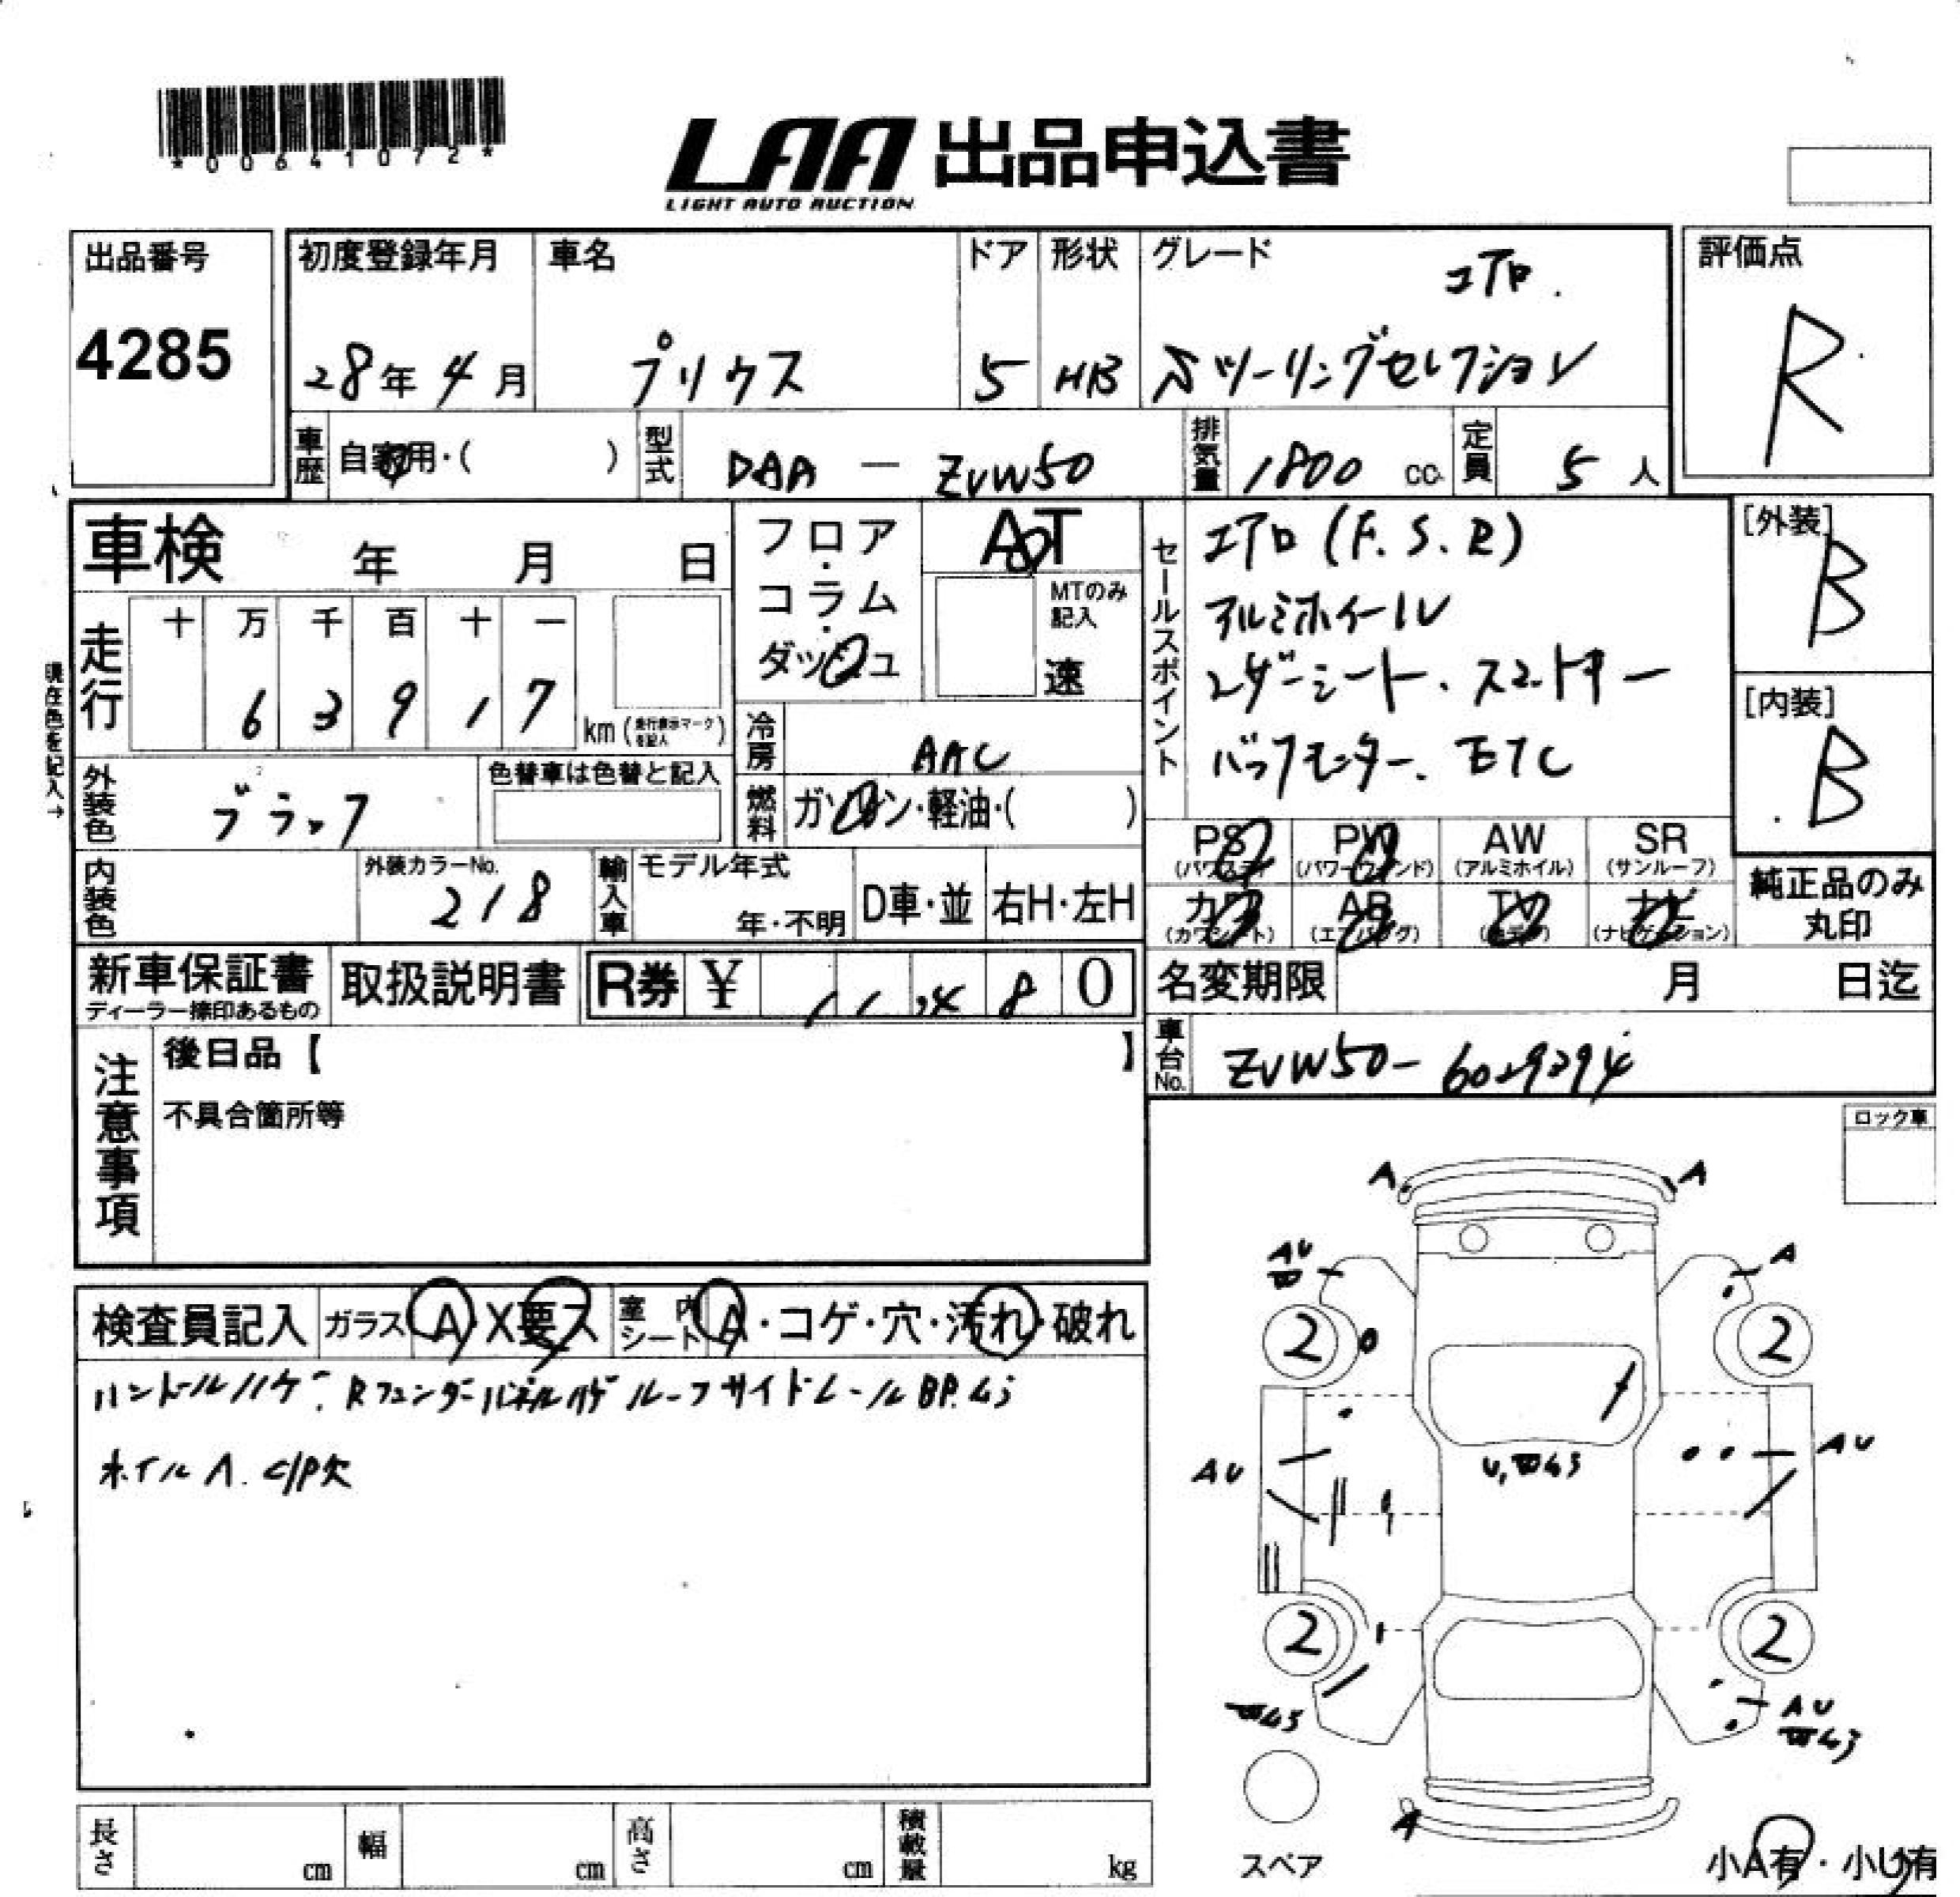 *00641072*
LAA 出品申込書
LIGHT AUTO AUCTION
出品番号
4285
初度登録年月
28年4月
車名
プリウス
ドア
5
形状
HB
グレード
エアロ.
Sツーリングセレクション
評価点
R
車歴
自家用・( )
型式
DAA — ZVW50
排気量
1800 cc
定員
5 人
車検 年 月 日
フロア・コラム・ダッシュ
AT
MTのみ記入
速
セールスポイント
エアロ (F.S.R)
アルミホイール
レザーシート.スマートキー
バックモニター. ETC
[外装]
B
[内装]
B
現在色を記入→
走行
十 万 千 百 十 一
6 3 9 1 7
km (走行表示マークを記入)
冷房
AAC
燃料
ガソリン・軽油・( )
外装色
ブラック
色替車は色替と記入
内装色
外装カラーNo.
218
輸入車
モデル年式
年・不明
D車・並
右H・左H
PS (パワステ)
PW (パワーウインド)
AW (アルミホイル)
SR (サンルーフ)
カワ (カワシート)
AB (エアバッグ)
TV
ナビ (ナビゲーション)
純正品のみ丸印
新車保証書
ディーラー捺印あるもの
取扱説明書
R券 ¥ 11,480
名変期限 月 日迄
車台No.
ZVW50-6029294
注意事項
後日品【 】
不具合箇所等
ロック車
検査員記入
ガラス A X要ス
室内シート A・コゲ・穴・汚れ・破れ
ハンドルハゲ. Rフェンダーパネルハゲ ルーフサイドレール BP.ムラ
ホイル A. C/P欠
A
A
AU
A
2
2
AU
AU
2
2
AU
A
長さ cm
幅 cm
高さ cm
積載量 kg
スペア
小A有・小U有